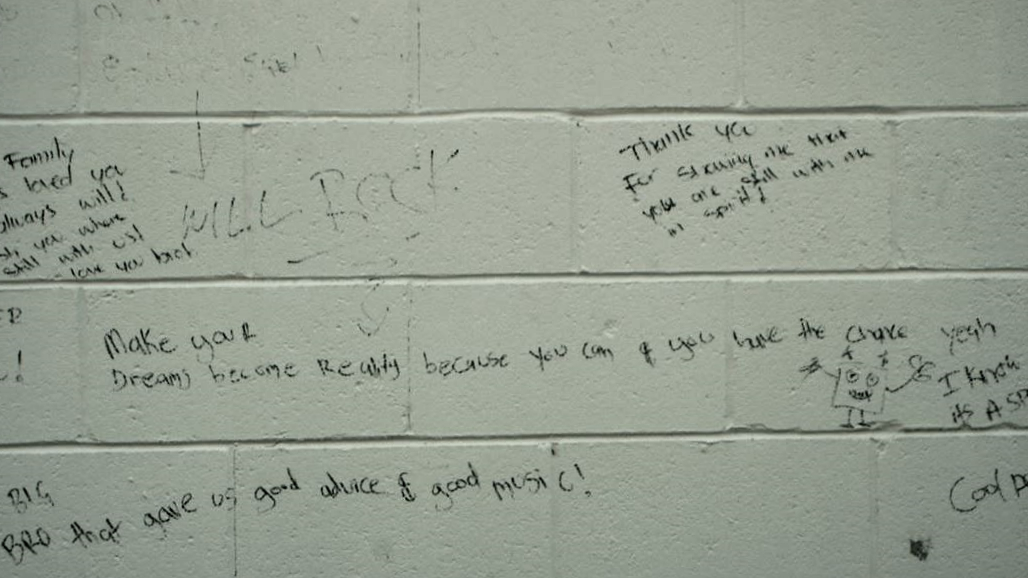 Family
loved ya
always will!
you where
still with us!
love you bro!
WILL ROCK
Thank ya
For showing me that
you are still with me
in spirit!
!
Make your
Dreams become Reality because you can if you have the chance yeah
I know
its A SP
BIG
BRO that gave us good advice & good music!
Cool